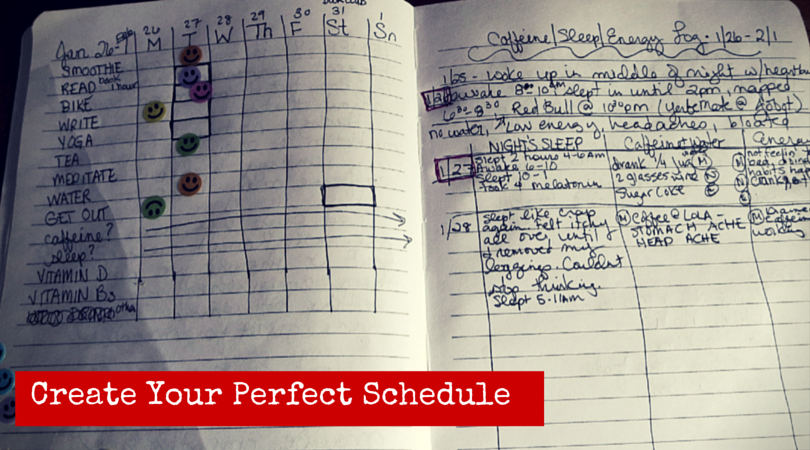 26 27 28 29 30 31 1
Jan 26- M T W Th F St Sn
SMOOTHIE
READ book 1 hour
BIKE
WRITE
YOGA
TEA
MEDITATE
WATER
GET OUT
caffeine?
sleep?
VITAMIN D
VITAMIN B3
Caffeine/Sleep/Energy Log - 1/26 - 2/1
1/25 - woke up in middle of night w/heartburn
slept in until 2pm, napped
Red Bull @ 10:00pm (Yerba Mate @
no water, low energy, headaches, bloated
NIGHT'S SLEEP Caffeine/water Energy
1/27 Slept 2 hours 4-6am
Awake 6-10
Slept 10-1
Took 4 melatonin
drank 1/4
2 glasses wine
Sugar Coke
not feelin'
1/28 Slept like crap
again. Felt itchy
all over until
I removed my
leggings. Couldn't
stop thinking.
Slept 5-11am
M Coffee @ LOLA -
STOMACH ACHE
HEAD ACHE
Create Your Perfect Schedule